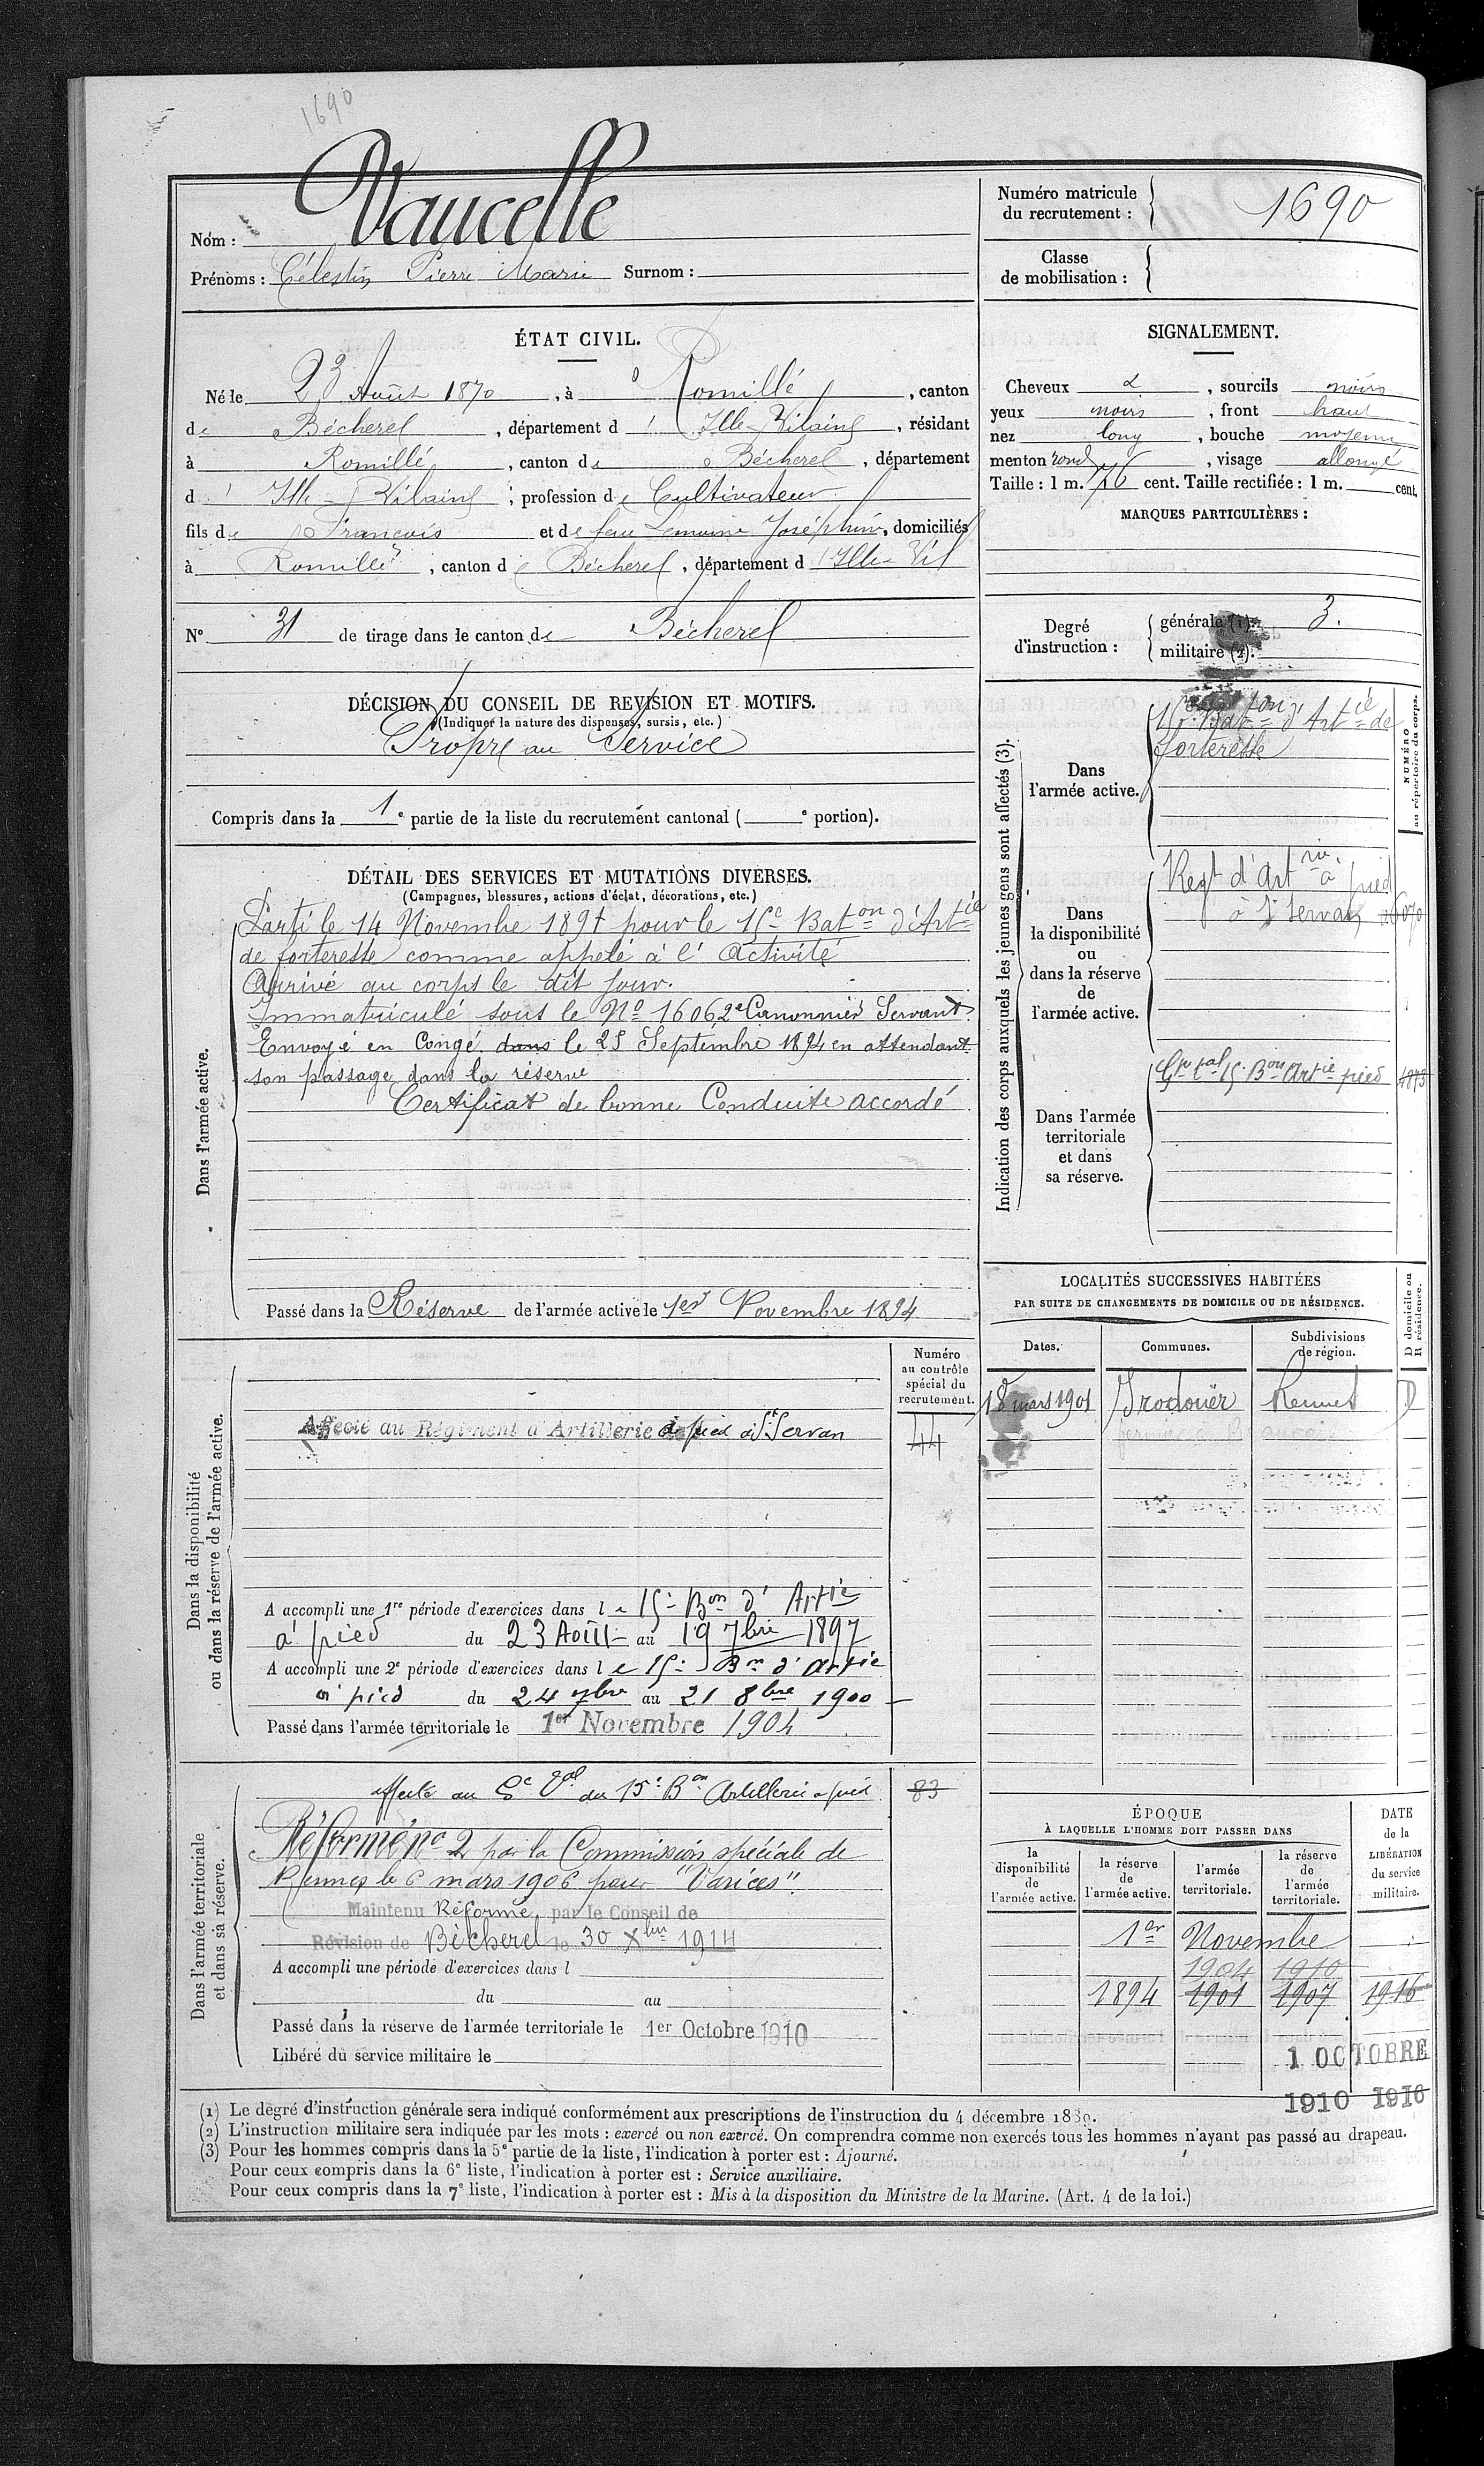 1690
Nom : Vaucelle
Prénoms : Célestin Pierre Marie Surnom :
Numéro matricule du recrutement : 1690
Classe de mobilisation :
ÉTAT CIVIL.
Né le 23 Août 1870, à Romillé, canton
de Bécherel, département d'Ille-Vilaine, résidant
à Romillé, canton de Bécherel, département
d'Ille-Vilaine, profession de Cultivateur
fils de François et de feue Lemoine Joséphine, domiciliés
à Romillé, canton de Bécherel, département d'Ille-Vil
N° 31 de tirage dans le canton de Bécherel
SIGNALEMENT.
Cheveux &, sourcils noirs
yeux noirs, front haut
nez long, bouche moyenne
menton rond, visage allongé
Taille : 1 m. 76 cent. Taille rectifiée : 1 m. cent.
MARQUES PARTICULIÈRES :
Degré d'instruction :
générale (1). 3.
militaire (2).
DÉCISION DU CONSEIL DE REVISION ET MOTIFS.
(Indiquer la nature des dispenses, sursis, etc.)
Propre au Service
Compris dans la 1e partie de la liste du recrutement cantonal ( e portion).
DÉTAIL DES SERVICES ET MUTATIONS DIVERSES.
(Campagnes, blessures, actions d'éclat, décorations, etc.)
Dans l'armée active.
Parti le 14 Novembre 1891 pour le 15e Baton d'Artie
de forteresse comme appelé à l'Activité
Arrivé au corps le dit jour.
Immatriculé sous le No 1606 2e Canonnier Servant
Envoyé en Congé dans le 25 Septembre 1894 en attendant
son passage dans la réserve
Certificat de bonne Conduite accordé
Passé dans la Réserve de l'armée active le 1er Novembre 1894
Indication des corps auxquels les jeunes gens sont affectés (3).
NUMÉRO au répertoire du corps.
Dans l'armée active.
15e Baton d'Artie de
forteresse
Dans la disponibilité ou dans la réserve de l'armée active.
Regt d'Artrie à pied
à St Servan
Dans l'armée territoriale et dans sa réserve.
Gpe tal 15e Bon Artie pied
LOCALITÉS SUCCESSIVES HABITÉES
PAR SUITE DE CHANGEMENTS DE DOMICILE OU DE RÉSIDENCE.
Dates. Communes. Subdivisions de région. D domicile ou R résidence.
18 mars 1901 Irodouër Rennes D
Dans la disponibilité ou dans la réserve de l'armée active.
Numéro au contrôle spécial du recrutement.
Affecté au Régiment d'Artillerie à pied à St Servan 44
A accompli une 1re période d'exercices dans le 15e Bon d'Artie
à pied du 23 Août au 19 7bre 1897
A accompli une 2e période d'exercices dans le 15e Bon d'Artie
à pied du 24 7bre au 21 8bre 1900
Passé dans l'armée territoriale le 1er Novembre 1904
Dans l'armée territoriale et dans sa réserve.
affecté au Ge tal du 15e Bon Artillerie à pied 83
Réformé no 2 par la Commission spéciale de
Rennes le 6 mars 1906 pour "Varices".
Maintenu Réformé par le Conseil de
Révision de Bécherel le 30 Xbre 1914
A accompli une période d'exercices dans l
du au
Passé dans la réserve de l'armée territoriale le 1er Octobre 1910
Libéré du service militaire le
ÉPOQUE
À LAQUELLE L'HOMME DOIT PASSER DANS
la disponibilité de l'armée active.
la réserve de l'armée active.
l'armée territoriale.
la réserve de l'armée territoriale.
DATE de la LIBÉRATION du service militaire.
1er Novembre
1904 1910
1894 1901 1907 1916
1 OCTOBRE
1910 1916
(1) Le degré d'instruction générale sera indiqué conformément aux prescriptions de l'instruction du 4 décembre 1889.
(2) L'instruction militaire sera indiquée par les mots : exercé ou non exercé. On comprendra comme non exercés tous les hommes n'ayant pas passé au drapeau.
(3) Pour les hommes compris dans la 5e partie de la liste, l'indication à porter est : Ajourné.
Pour ceux compris dans la 6e liste, l'indication à porter est : Service auxiliaire.
Pour ceux compris dans la 7e liste, l'indication à porter est : Mis à la disposition du Ministre de la Marine. (Art. 4 de la loi.)